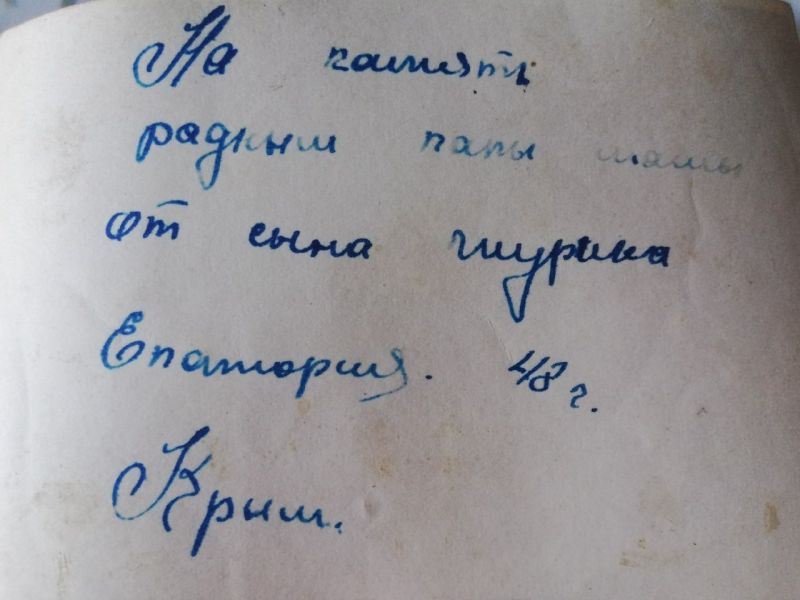 На память
радным папы мамы
от сына шурика
Епатория. 48 г.
Крым.